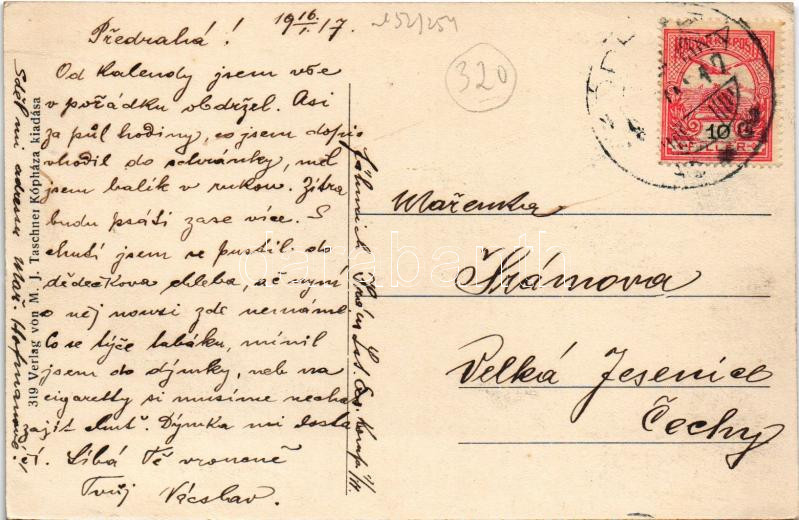 19 16/I. 17.
252/254
320
Předrahá!
Od Kalendy jsem vše
v pořádku obdržel. Asi
za půl hodiny, co jsem dopis
vhodil do schránky, měl
jsem balík v rukou. Zítra
budu psáti zase více. S
chutí jsem se pustil do
dědečkova chleba, ač nyní
o něj nouzi zde nemáme.
Co se týče tabáku, mínil
jsem do dýmky, neb na
cigaretty si musíme nechat
zajít chuť. Dýmka mi dosta-
čí. Líbá Tě vroucně
Tvůj Václav.
Sděl mi adresu Mař. Hofmanové!
319 Verlag von M. J. Taschner Kópháza kiadása
MAGYAR KIR. POSTA
10
FILLÉR
Mařenka
Šrámova
Velká Jesenice
Čechy
darabanth